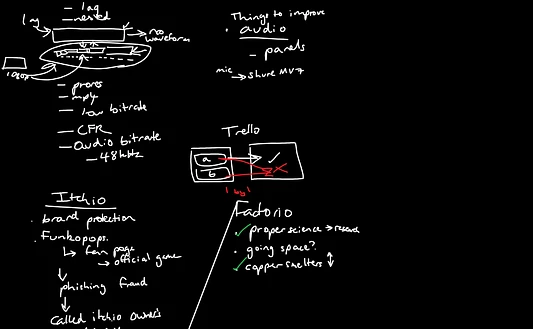 - lag
- nested
no waveform
1080p
- prores
- mp4
- low bitrate
- CFR
- audio bitrate
- 48khz
Things to improve
• audio
- panels
mic
→ shure MV7
Trello
a
b
1 by 1
Itchio
• brand protection
• Funkopops.
↳ fan page
→ official game
↓ phishing fraud
↓
called itchio owner's
Factorio
✓ proper science →
• going space?
✓ copper smelters ↕